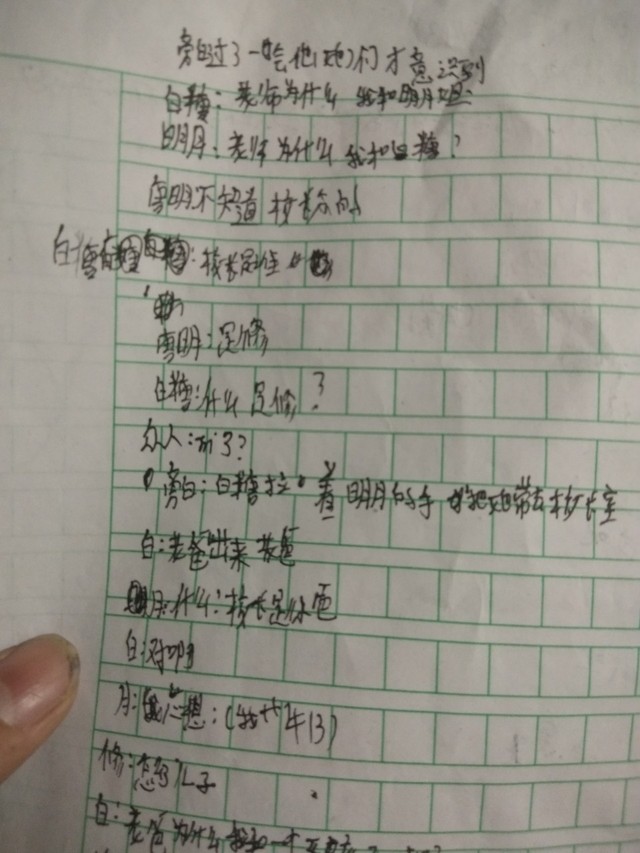 旁白过了一会他(她)们才意识到
白糖:老师为什么 我和明月姐
明月:老师为什么 我和白糖?
雪明不知道 校长分的
白糖:校长是谁
雪明:是修
白糖:什么 是修?
众人:咋了?
旁白:白糖拉着明月的手 把她带去校长室
白:老爸出来 老爸
明月:什么?校长是你爸
白:对啊
月:心想:(我艹牛B)
修:怎么了儿子
白:老爸为什么我和